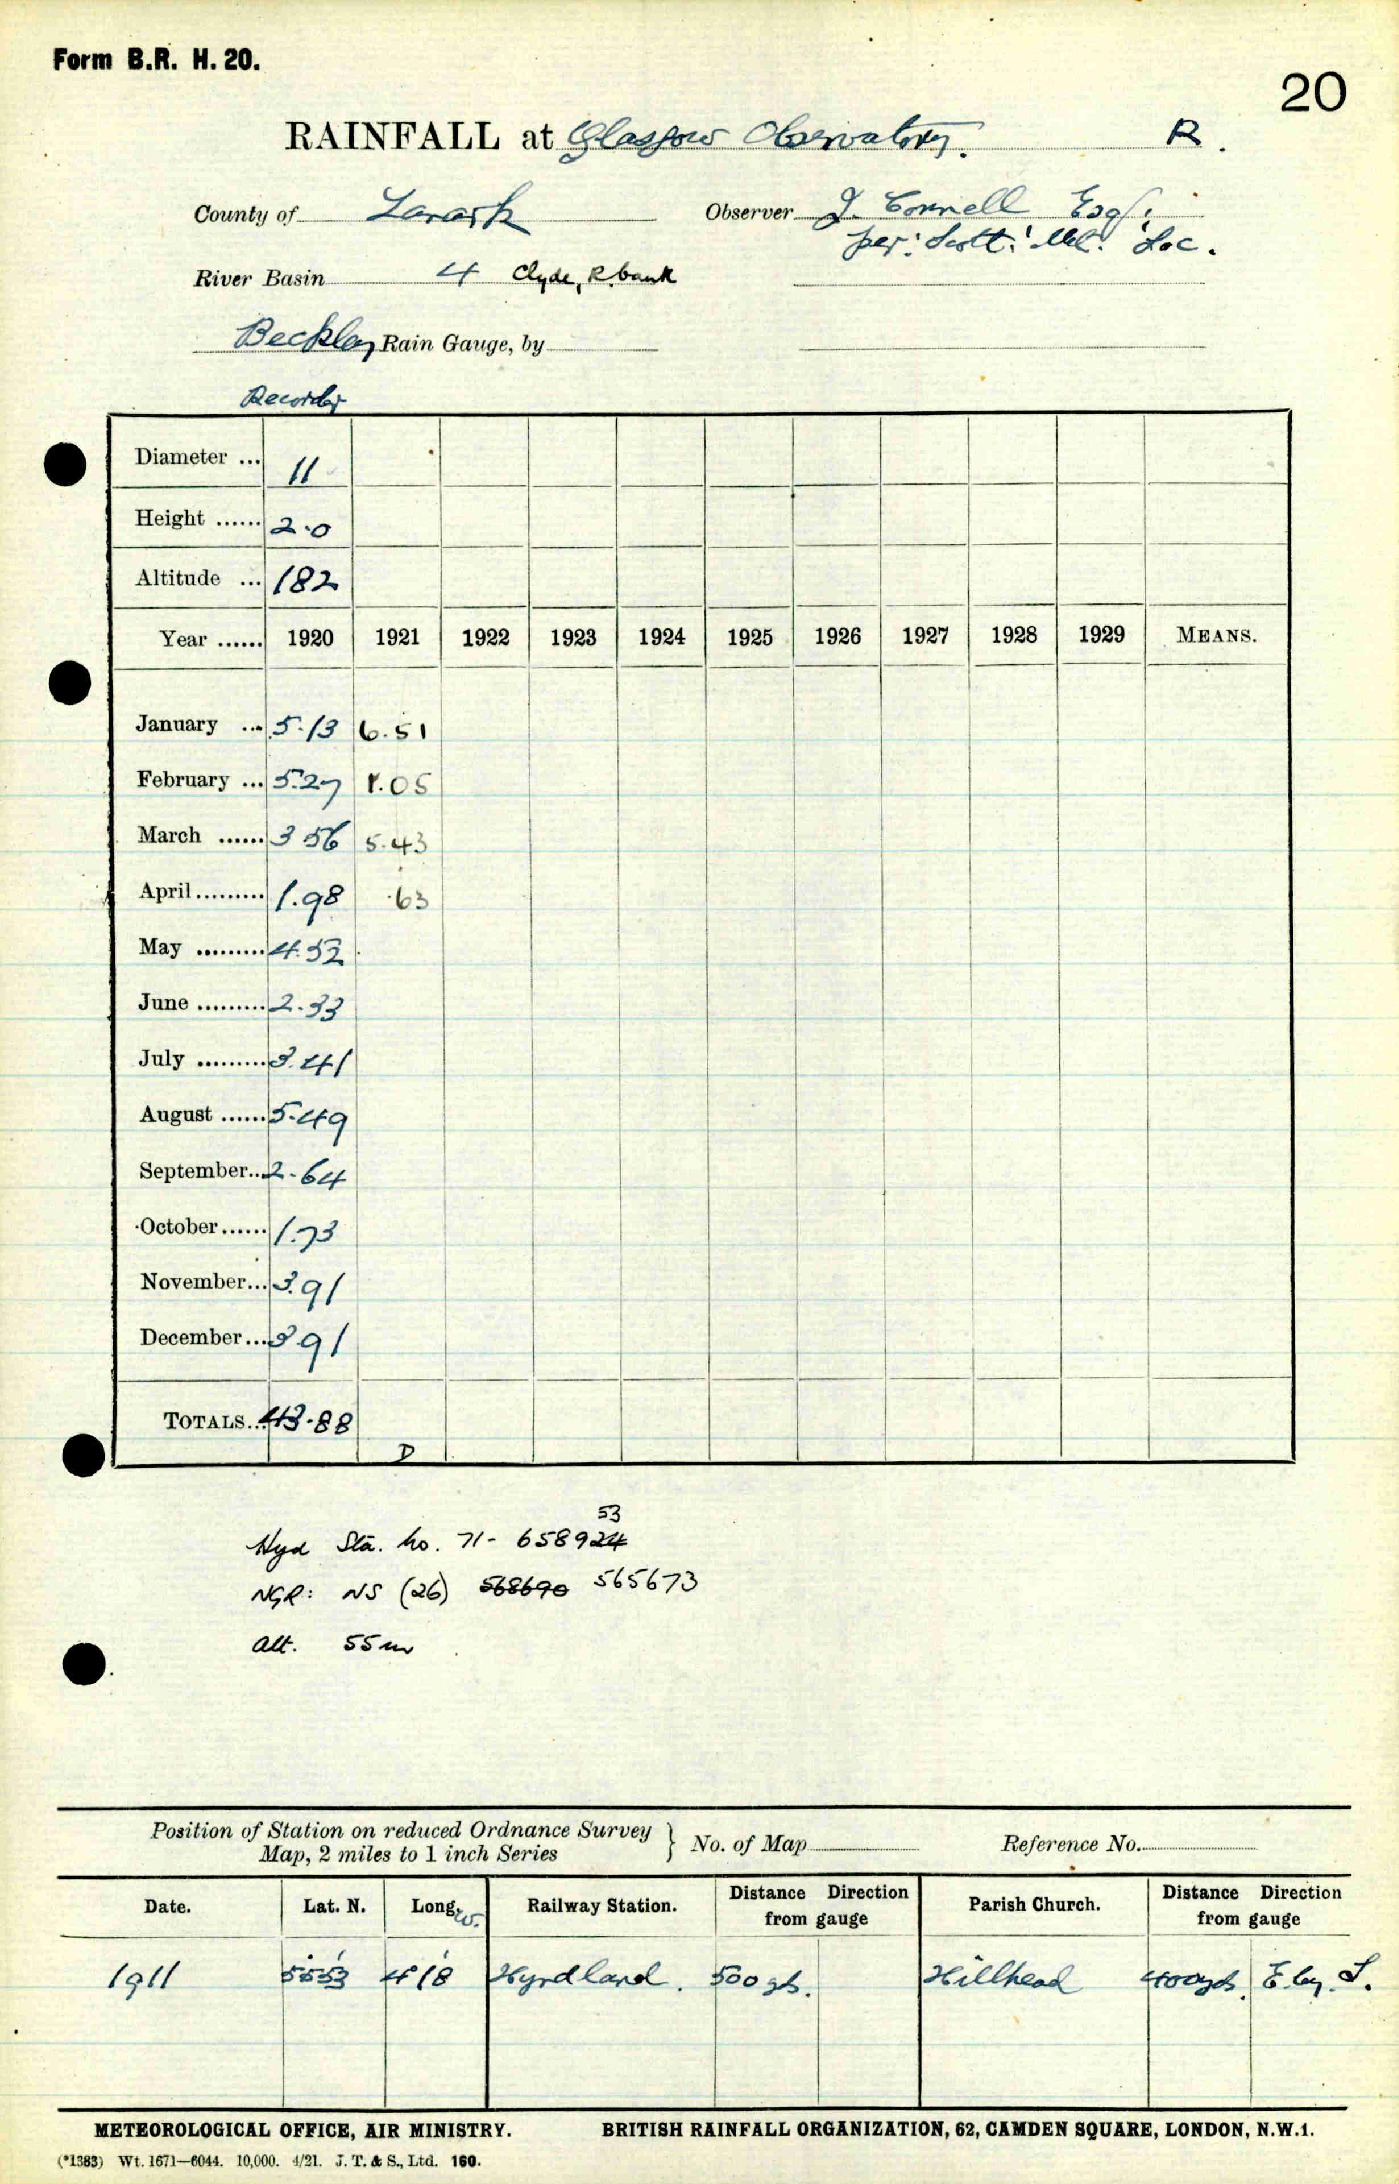 Form B.R. H. 20.
20
RAINFALL at Glasgow Observatory. R.
County of Lanark Observer J. Connell Esq.
per. Scott. Met. Soc.
River Basin 4 Clyde, R. bank
Beckley Rain Gauge, by
Recorder
Diameter ... 11
Height ...... 2.0
Altitude ... 182
Year ...... 1920 1921 1922 1923 1924 1925 1926 1927 1928 1929 MEANS.
January ... 5.13 6.51
February ... 5.27 1.05
March ...... 3 56 5.43
April ......... .63 1.98
May ......... 4.52
June ......... 2.33
July ......... 3.41
August ...... 5.49
September.. 2.64
October ...... 1.73
November... 3.91
December... 3 91
TOTALS... 43.88
D
53
Hyd Sta. no. 71- 658924
NGR: NS (26) 568690 565673
alt. 55m
Position of Station on reduced Ordnance Survey
Map, 2 miles to 1 inch Series } No. of Map Reference No.
Date. Lat. N. Long. W. Railway Station. Distance Direction from gauge Parish Church. Distance Direction from gauge
1911 55 53 4 18 Hyndland. 500 yds. Hillhead 400 yds. E. by S.
METEOROLOGICAL OFFICE, AIR MINISTRY. BRITISH RAINFALL ORGANIZATION, 62, CAMDEN SQUARE, LONDON, N.W.1.
(*1383) Wt. 1671—6044. 10,000. 4/21. J. T. & S., Ltd. 160.